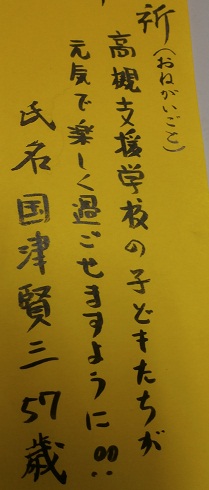 祈(おねがいごと)
高槻支援学校の子どもたちが
元気で楽しく過ごせますように!!
氏名国津賢三57歳